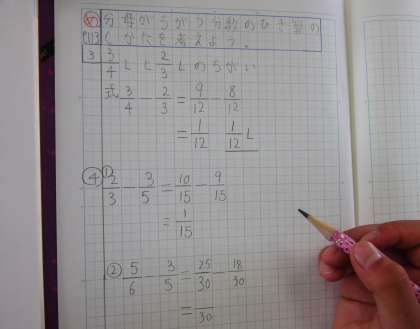 め 分母がちがう分数のひき算の
P113 しかたを考えよう。
3 3/4 Lと 2/3 Lのちがい
式 3/4 - 2/3 = 9/12 - 8/12
= 1/12 1/12 L
④ ① 2/3 - 3/5 = 10/15 - 9/15
= 1/15
② 5/6 - 3/5 = 25/30 - 18/30
= /30